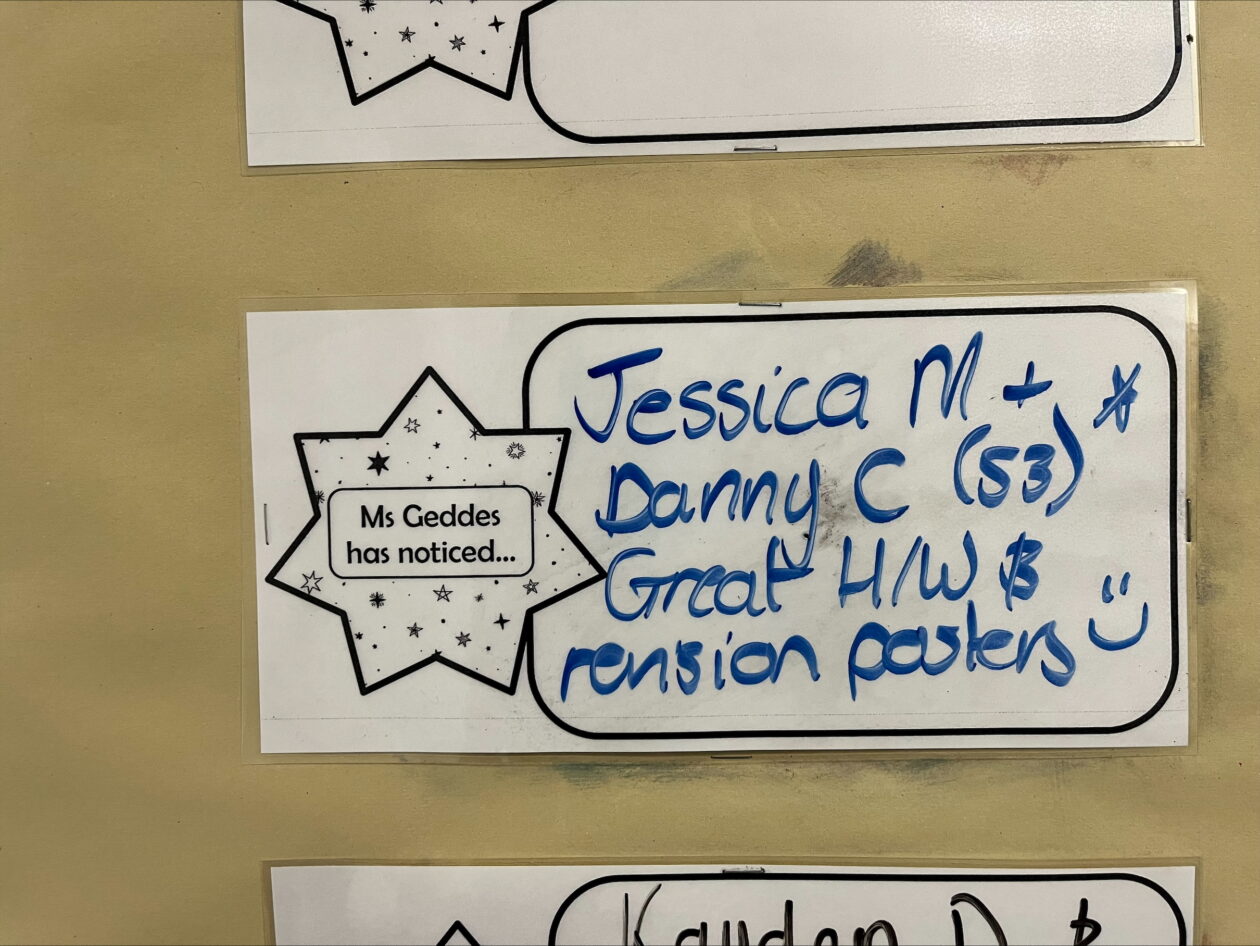 Ms Geddes
has noticed...
Jessica M + *
Danny C (S3)
Great H/W &
revision posters
Kayden D &